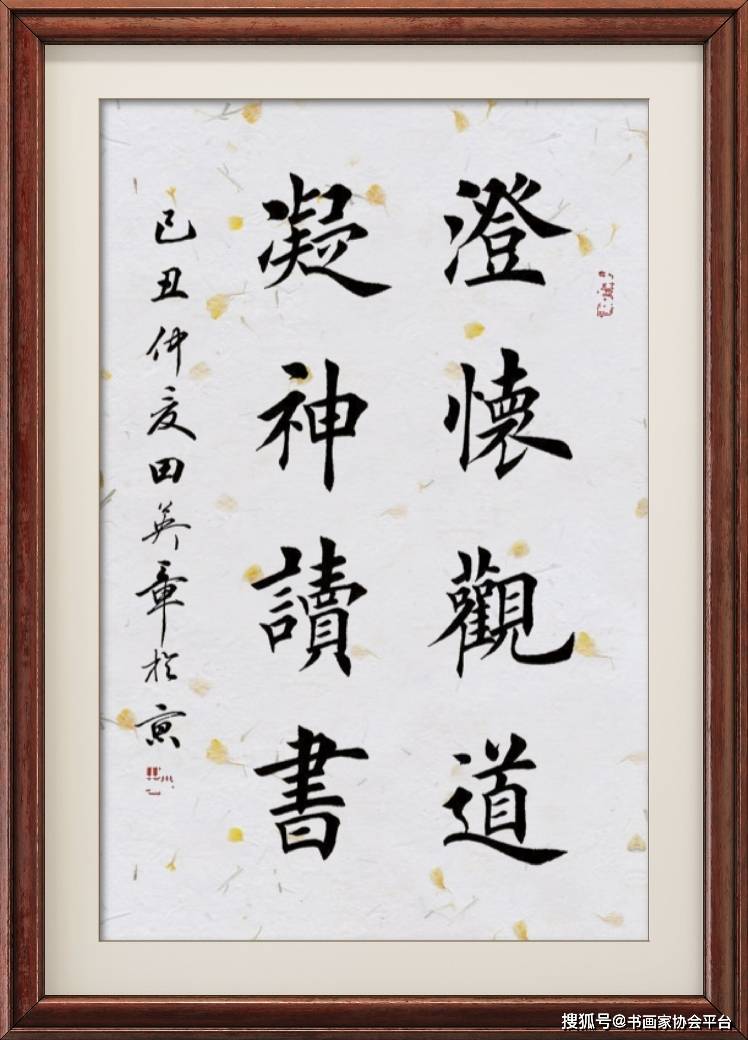 澄懷觀道
凝神讀書
己丑仲夏田英章於寅
搜狐号@书画家协会平台